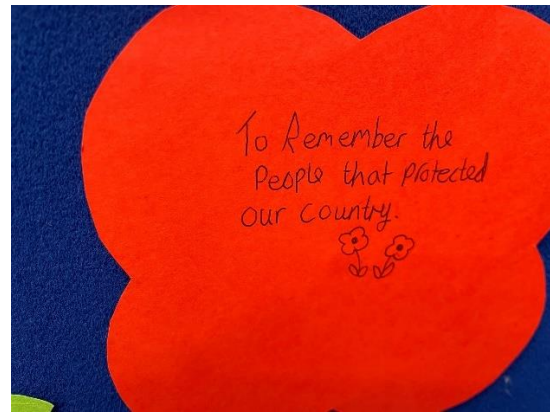 To Remember the
People that protected
our country.